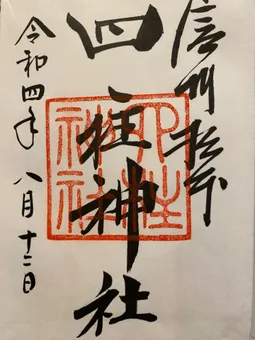 信州松本
四柱神社
四柱神社
令和四年八月十二日